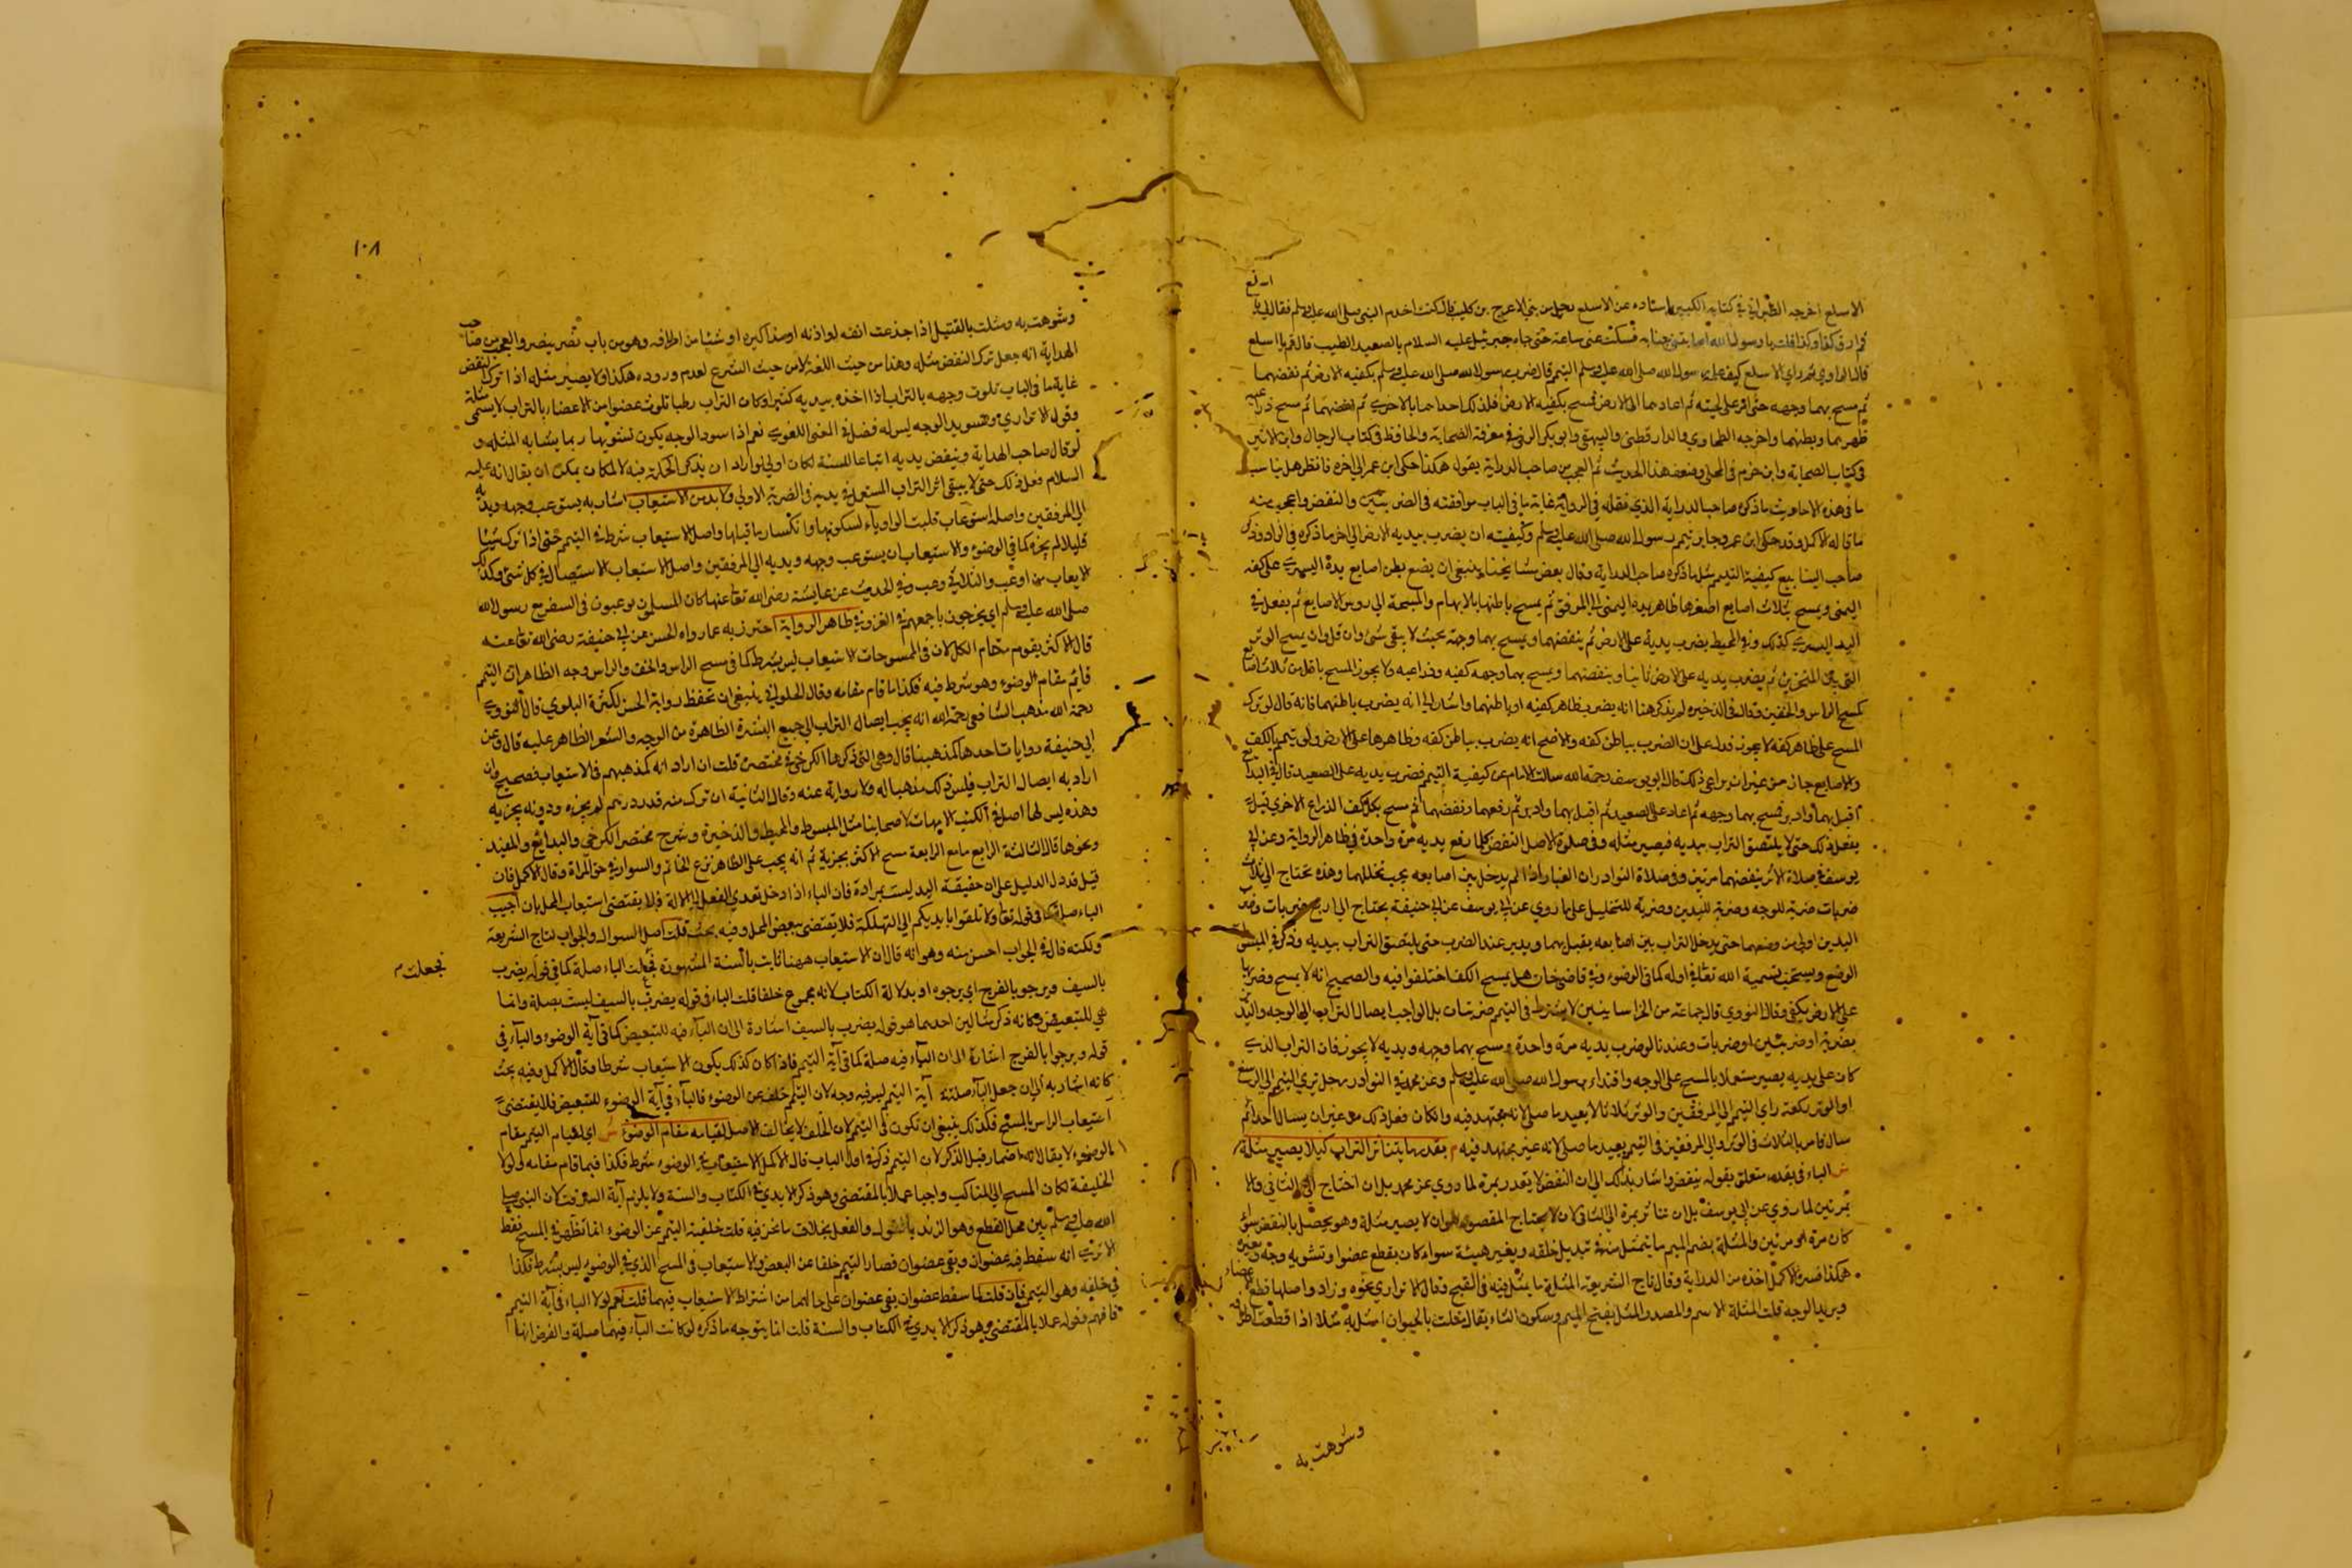 الاسلع اخرجه الطبراني في كتابه الكبير باسناده عن الاسلع رجل من بني الاعرج بن كعب قال كنت اخدم النبي صلى الله عليه وسلم فقال لي يا
قم ارق كذا وكذا قلت يا رسول الله اصابتني جنابة فسكت عني ساعة حتى جاء جبرئيل عليه السلام بالصعيد الطيب قال قم يا اسلع
قال الراوي ثم راي الاسلع كيف علمه رسول الله صلى الله عليه وسلم التيمم قال ضرب رسول الله صلى الله عليه وسلم بكفيه الارض ثم نفضهما
ثم مسح بهما وجهه حتى امر على لحيته ثم اعادهما الى الارض فمسح بكفيه الارض فدلك احداهما بالاخرى ثم نفضهما ثم مسح ذراعيه
ظهرهما وبطنهما واخرجه الطحاوي والدارقطني والبيهقي وابو بكر في معرفة الصحابة والحافظ في كتاب الرجال وابن الاثير
في كتاب الصحابة وابن حزم في المحلى وضعف هذا الحديث ثم العجب من صاحب الدراية يقول هكذا حكى ابن عمر الى اخره فانظر هل يناسب
ما في هذه الاحاديث ما ذكره صاحب الدراية الذي نقله في الرواية غاية ما في الباب موافقته في الضربتين والنفض واعجب منه
ما قاله الاكمل وقد حكى ابن عمر وجابر تيمم رسول الله صلى الله عليه وسلم وكيفيته ان يضرب بيديه الارض الى اخر ما ذكره في الزاد وذكر
صاحب الينابيع كيفية التيمم مثل ما ذكره صاحب الدراية وقال بعض مشايخنا ينبغي ان يضع بطن اصابع يده اليسرى على كفه
اليمنى ويمسح بثلاث اصابع اصغرها ظاهر يده اليمنى الى المرفق ثم يمسح باطنها بالابهام والمسبحة الى روس الاصابع ثم يفعل في
اليد اليسرى كذلك وفي المحيط يضرب يديه على الارض ثم ينفضهما ويمسح بهما وجهه بحيث لا يبقى شئ وان قل وان يمسح الوترة
التي بين المنخرين ثم يضرب يديه على الارض ثانيا وينفضهما ويمسح بهما وجهه كفيه وذراعيه ولا يجوز المسح باقل من ثلاث اصابع
كمسح الراس والخفين وقال في الذخيره لم يذكر هنا انه يضرب ظاهر كفيه او باطنهما واشار الى انه يضرب باطنهما فانه قال لو ترك
المسح على ظاهر كفه لا يجوز فدل على ان الضرب بباطن كفه والاصح انه يضرب بباطن كفه وظاهرها على الارض ولو تيمم بالكف
والاصابع جاز من غير ان يراعي ذلك قال ابو يوسف رحمه الله سالت الامام عن كيفية التيمم فضرب يديه على الصعيد قال في البدائع
اقبل بهما وادبر فمسح بهما وجهه ثم اعاد على الصعيد ثم اقبل بهما وادبر ثم رفعهما ونفضهما ثم مسح بكل كف الذراع الاخرى قيل
يفعل ذلك حتى لا يلتصق التراب بيديه فيصير مثله وفي صلوة الاصل النفض كلما رفع يديه مرة واحدة في ظاهر الرواية وعن ابي
يوسف في صلاة الاثر ينفضهما مرتين وفي صلاة النوادر ان الغبار اذا لم يدخل بين اصابعه يجب تخللها وهذه تحتاج الى ثلاث
ضربات ضربة للوجه وضربة لليدين وضربة للتخليل على ما روي عن ابي يوسف عن ابي حنيفة يحتاج الى اربع ضربات وضرب
اليدين اولى من وضعهما حتى يدخل التراب بين اصابعه يقبل بهما ويدبر عند الضرب حتى يلتصق التراب بيديه وذكر في المبسوط
الوضع ويستحب تسمية الله تعالى في اوله كما في الوضوء وفي قاضي خان هل يمسح الكف اختلفوا فيه والصحيح انه لا يمسح وضربها
على الارض يكفي وقال النووي قال جماعة من الخراسانيين لا يشترط في التيمم ضربتان بل الواجب ايصال التراب الى الوجه واليدين
بضربة او ضربتين او ضربات وعندنا لو ضرب يديه مرة واحدة ومسح بهما وجهه ويديه لا يجوز فان التراب الذي
كان على يديه يصير مستعملا بالمسح على الوجه واقتداء برسول الله صلى الله عليه وسلم وعن محمد في النوادر رجل ترى التيمم الى الرسغ
او الوتر ركعة راي التيمم الى المرفقين والوتر ثلاثا لا يعيد ما صلى لانه مجتهد فيه وان كان فعل ذلك من غير ان يسال احدا ثم
سال فامر بالثلاث في الوتر والى المرفقين في التيمم يعيد ما صلى لانه غير مجتهد فيه م بقدر ما يتناثر التراب كيلا يصير مثلة
ش الباء في بقدر متعلق بقوله ينفض واشار بذلك الى ان النفض لا يقدر بمرة لما روي عن محمد بل ان احتاج الى الثاني ولا
بمرتين لما روي عن ابي يوسف بل ان تناثر بمرة الى الثاني لان لا يحتاج المقصود هو ان لا يصير مثلة وهو يحصل بالنفض سواء
كان مرة او مرتين والمثلة بضم الميم ما يتمثل منه في تبديل خلقه وتغيير هيئة سواء كان بقطع عضو او تشويه وجه وتغييره
هكذا فسره الاكمل اخذه من الدراية وقال تاج الشريعة المثلة ما يمثل فيه في القبح وقال الاتراري نحوه وزاد واصلها قطع الاعضاء
وبريد الوجه قلت المثلة الاسم والمصدر المثل بفتح الميم وسكون الثاء يقال مثلت بالحيوان امثل به مثلا اذا قطعت اطرافه
وشوهت به
١٠٨
وشوهت به ومثلت بالقتيل اذا جذعت انفه او اذنه او مذاكيره او شيئا من اطرافه وهو من باب نصر ينصر والعجب من صاحب
الهداية انه جعل ترك النفض مثله وهذا من حيث اللغة لا من حيث الشرع لعدم وروده هكذا ولا يصير مثله اذا ترك النفض
غاية ما في الباب تلوث وجهه بالتراب اذا اخذه بيديه كثيرا وكان التراب رطبا تلوث عضو من الاعضاء بالتراب لا يسمى مثلة
وقول الاتراري وتسويد الوجه ليس له فضل في المعنى اللغوي نعم اذا سود الوجه يكون تشويها ربما يشابه المثله و
لو قال صاحب الهداية وينفض يديه اتباعا للسنة لكان اولى لو اراد ان يذكر الحكمة فيه لامكان يمكن ان يقال انه عليه
السلام فعل ذلك حتى لا يبقى اثر التراب المستعمل في يديه في الضربة الاولى ولا بد من الاستيعاب اشار به يستوعب وجهه ويديه
الى المرفقين واصله استوعاب قلبت الواو ياء لسكونها وانكسار ما قبلها واصل الاستيعاب شرط في التيمم حتى اذا ترك شيئا
قليلا لم يجزه كما في الوضوء والاستيعاب ان يستوعب وجهه ويديه الى المرفقين واصل الاستيعاب الاستيصال في كل شئ وكذلك
الايعاب من اوعب والثلاثي وعب وفي الحديث عن عايشة رضي الله تعالى عنها كان المسلمون يوعبون في السفر مع رسول الله
صلى الله عليه وسلم اي يخرجون باجمعهم في الغزو في ظاهر الرواية احترز به عما رواه الحسن عن ابي حنيفة رضي الله تعالى عنه
قال الاكثر يقوم مقام الكل لان في الممسوحات الاستيعاب ليس بشرط كما في مسح الراس والخف والراس وجه الظاهر ان التيمم
قايم مقام الوضوء وهو شرط فيه فكذا ما قام مقامه وقال الحلواني ينبغي ان تحفظ رواية الحسن لكثرة البلوي قال النووي
رحمه الله مذهب الشافعي رحمه الله انه يجب ايصال التراب الى جميع البشرة الظاهرة من الوجه والشعر الظاهر عليه قال وعن
ابي حنيفة روايات احدها كمذهبنا قال وهي التي ذكرها الكرخي في مختصره قلت ان اراد انه كمذهبهم في الاستيعاب فصحيح وان
اراد به ايصال التراب فليس ذلك مذهبا له ولا رواية عنه وقال الثانية ان ترك منه قدر درهم لم يجزه ودونه يجزيه
وهذه ليس لها اصل في الكتب الامهات لاصحابنا مثل المبسوط والمحيط والذخيرة وشرح مختصر الكرخي والبدايع والمفيد
ونحوها قال الثالثة الرابع مامع الرابعة مسح الاكثر يجزيه ثم انه يجب على الظاهر نزع الخاتم والسوار في حق المراة وقال الاكمل فان
قيل قد دل الدليل على ان حقيقة اليد ليست بمرادة فان الباء اذا دخل تعدي الفعل الى الالة فلا يقتضي استيعاب المحل بان اجيب
الباء صلة كما في قوله تعالى ولا تلقوا بايديكم الى التهلكة فلا يقتضى تبعيض المحل وفيه بحث قلت اصل السوال والجواب لتاج الشريعة
ولكنه قال في الجواب احسن منه وهو انه قال ان الاستيعاب ههنا ثابت بالسنة المشهورة فجعلت الباء صلة كما في قوله يضرب
فجعلت م
بالسيف ويرجو بالفرج اي يرجوه او بدلالة الكتاب لانه مجموع خلفا قلت الباء في قوله يضرب بالسيف ليست بصلة وانما
هي للتبعيض وكانه ذكر مثالين احدهما هو قوله يضرب بالسيف اشارة الى ان الباء فيه للتبعيض كما في آية الوضوء والباء في
قوله ويرجوا بالفرج اشارة الى ان الباء فيه صلة كما في آية التيمم فاذا كان كذلك يكون الاستيعاب شرطا وقال الاكمل وفيه بحث
كانه اشار به الى ان جعل الباء صلة في آية التيمم ليس فيه وجه لان التيمم خلف عن الوضوء فالباء في آية الوضوء للتبعيض فلا يقتضى
استيعاب الراس بالمسح فكذلك ينبغي ان تكون في التيمم لان الخلف لا يخالف الاصل لقيامه مقام الوضوء ش اي لقيام التيمم مقام
الوضوء لا يقال لانه اضمار قبل الذكر لان التيمم ذكر في اول الباب قال الاكمل الاستيعاب في الوضوء شرط فكذا فيما قام مقامه ولولا
الخليفة لكان المسح الى المناكب واجبا عملا بالمقتضى وهو ذكر الايدي في الكتاب والسنة ولا يلزم آية السرقة لان النبي صلى
الله عليه وسلم بين محل القطع وهو الزند بالقول والفعل بخلاف ما نحن فيه قلت خلفية التيمم عن الوضوء انما تظهر في المسح فقط
الا ترى انه سقط فيه عضوان وبقي عضوان فصار التيمم خلفا عن البعض والاستيعاب في المسح الذي في الوضوء ليس بشرط فكذا
في خلفه وهو التيمم فان قلت لما سقط عضوان بقي عضوان على حالهما من اشتراط الاستيعاب فيهما قلت نعم لولا الباء في آية التيمم
فافهم وقوله عملا بالمقتضى وهو ذكر الايدي في الكتاب والسنة قلت انما يتوجه ما ذكره لو كانت الباء فيهما صلة والفرض انها